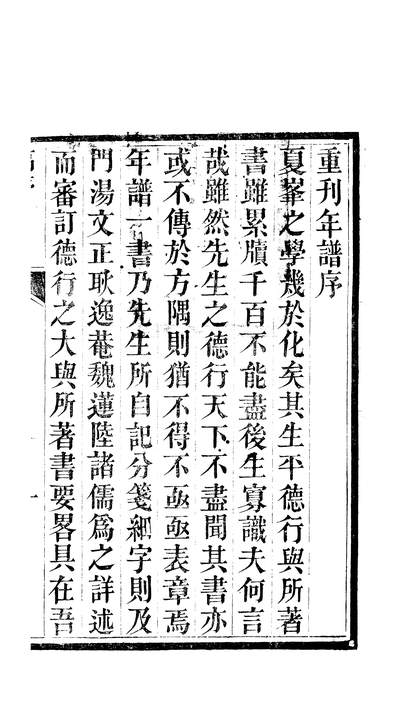 重刊年譜序
夏峯之學幾於化矣其生平德行與所著
書雖累牘千百不能盡後生寡識夫何言
哉雖然先生之德行天下不盡聞其書亦
或不傳於方隅則猶不得不亟亟表章焉
年譜一書乃先生所自記分箋細字則及
門湯文正耿逸菴魏蓮陸諸儒爲之詳述
而審訂德行之大與所著書要畧具在吾